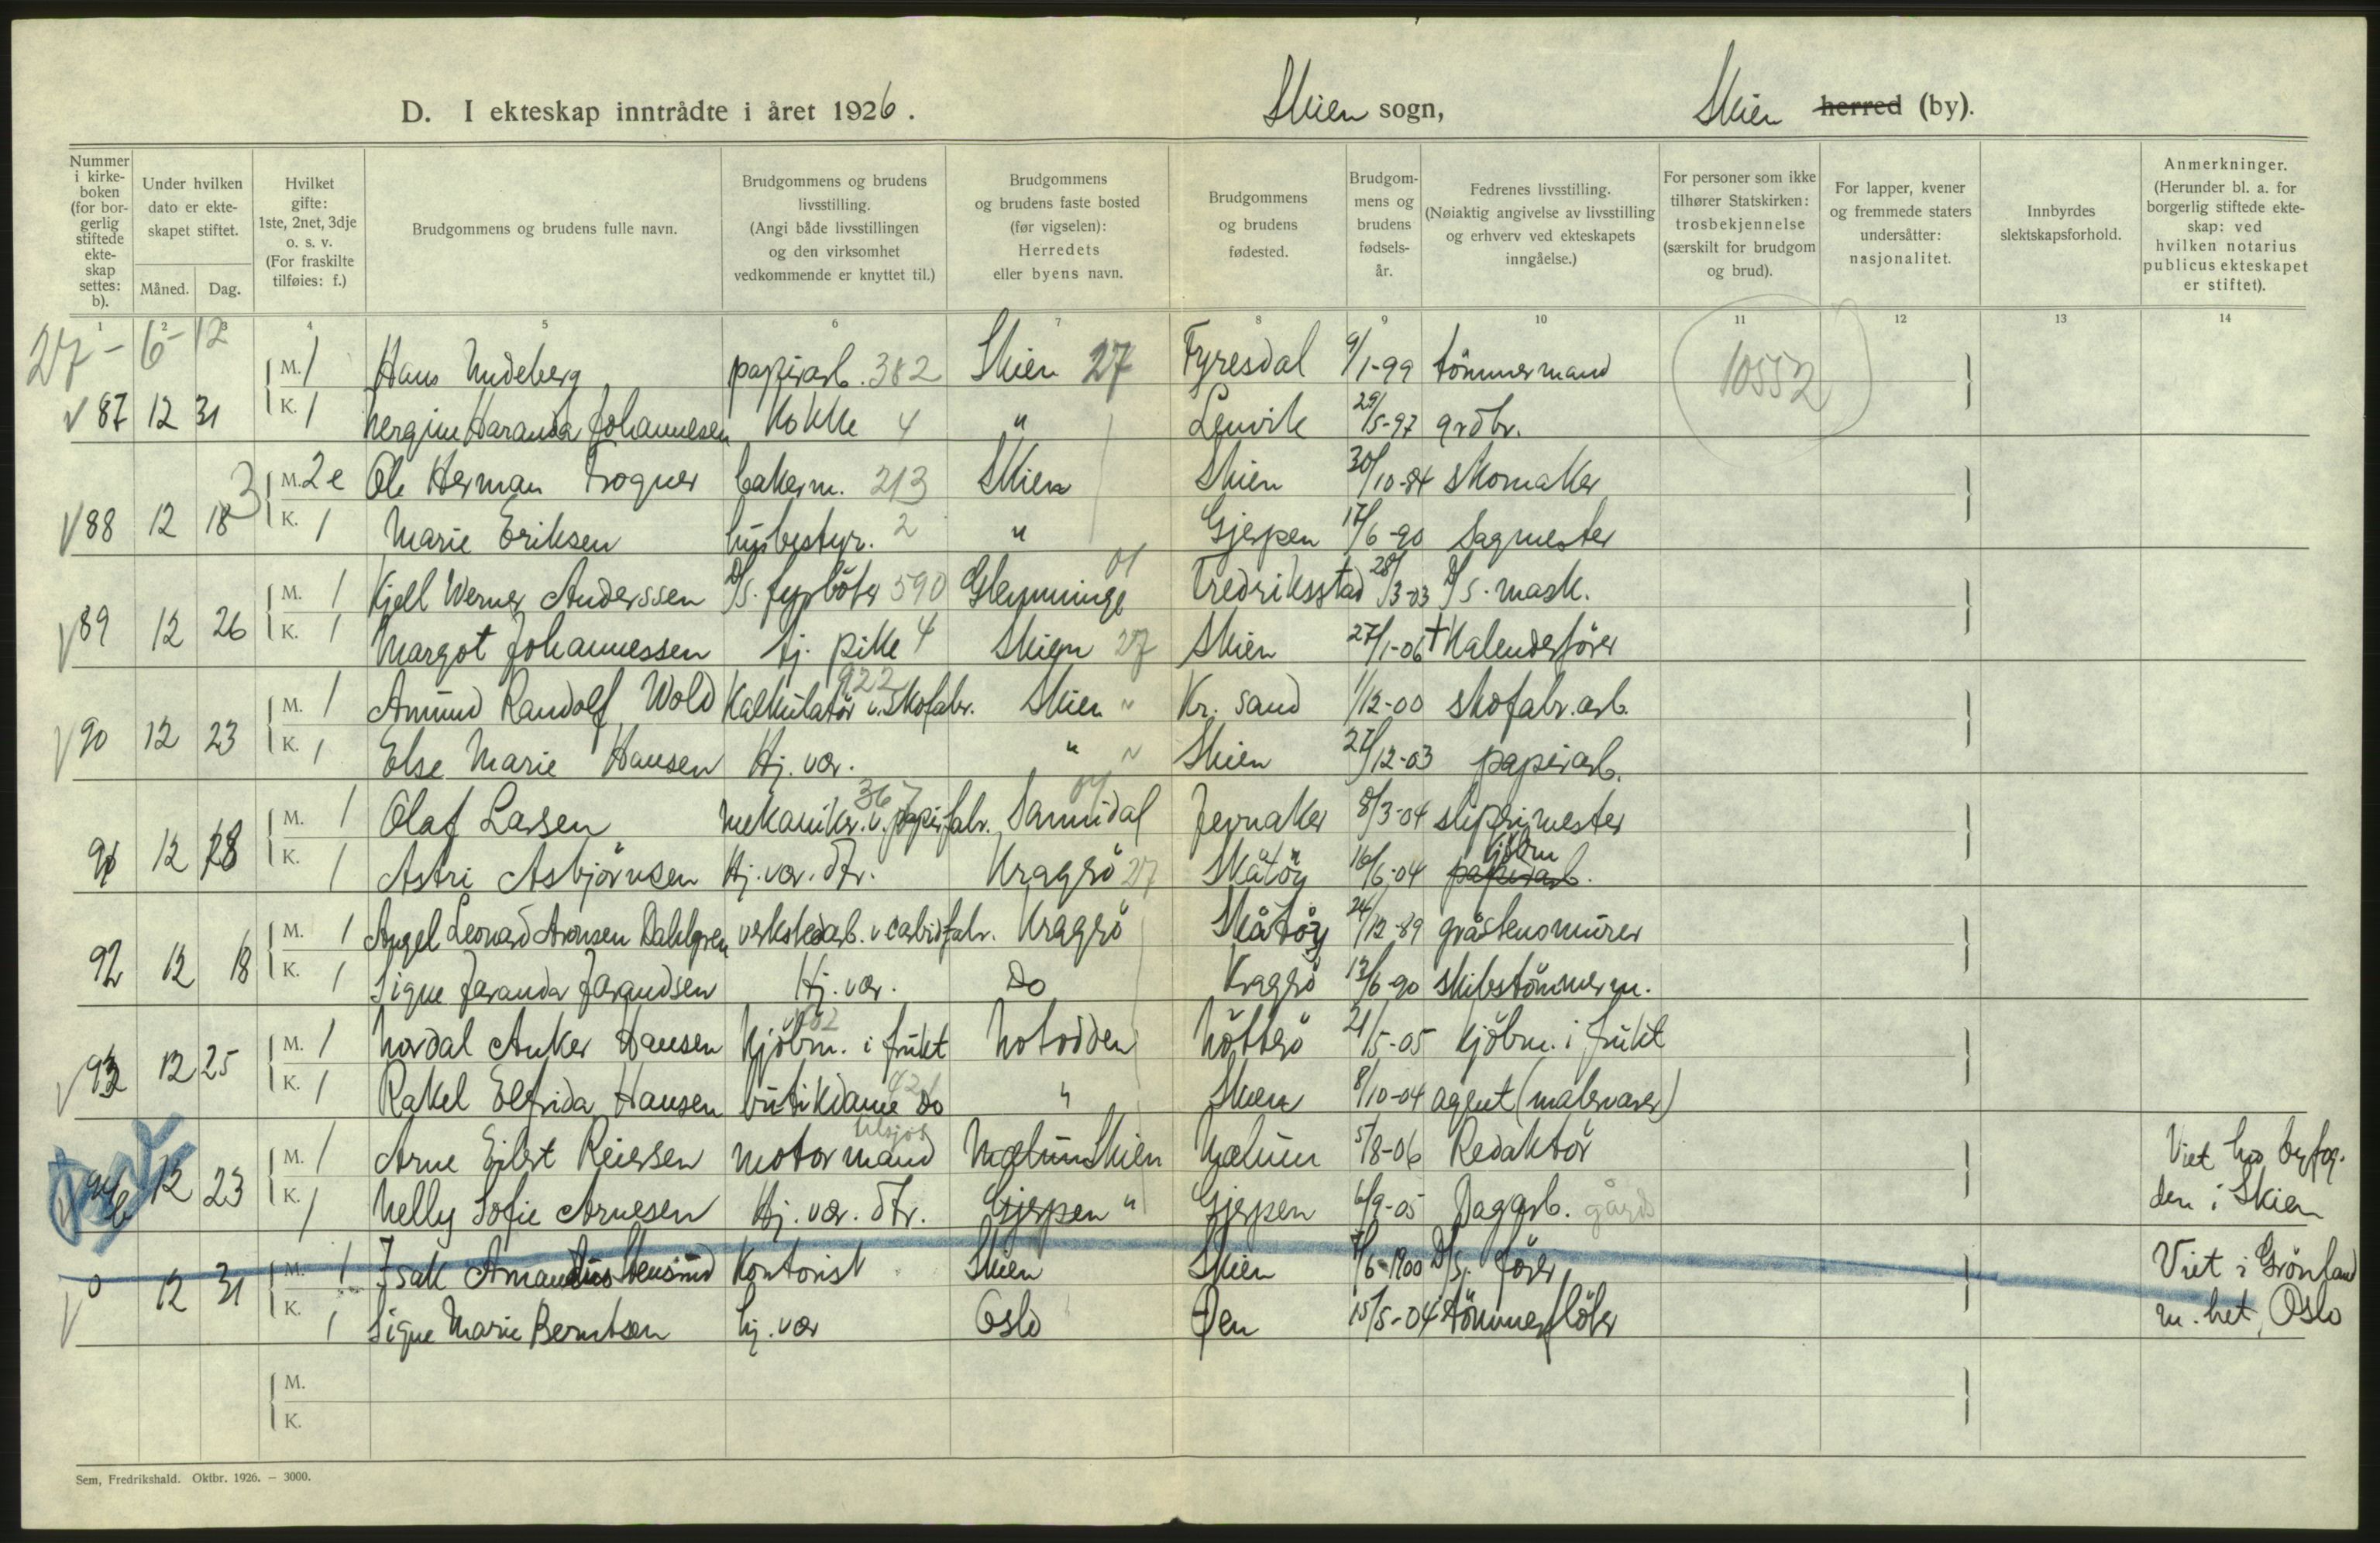 D. I ekteskap inntrådte i året 1926. Skien sogn, Skien herred (by).
Nummer i kirkeboken (for borgerlig stiftede ekteskap settes: b).
Under hvilken dato er ekteskapet stiftet.
Måned. Dag.
Hvilket gifte: 1ste, 2net, 3dje o. s. v. (For fraskilte tilføies: f.)
Brudgommens og brudens fulle navn.
Brudgommens og brudens livsstilling. (Angi både livsstillingen og den virksomhet vedkommende er knyttet til.)
Brudgommens og brudens faste bosted (før vigselen): Herredets eller byens navn.
Brudgommens og brudens fødested.
Brudgommens og brudens fødselsår.
Fedrenes livsstilling. (Nøiaktig angivelse av livsstilling og erhverv ved ekteskapets inngåelse.)
For personer som ikke tilhører Statskirken: trosbekjennelse (særskilt for brudgom og brud).
For lapper, kvener og fremmede staters undersåtter: nasjonalitet.
Innbyrdes slektskapsforhold.
Anmerkninger. (Herunder bl. a. for borgerlig stiftede ekteskap: ved hvilken notarius publicus ekteskapet er stiftet).
1 2 3 4 5 6 7 8 9 10 11 12 13 14
27 - 6 - 12
M. 1 Hans papirarb. 382 Skien 27 Fyresdal 9/1-99 tömmermand 10552
87 12 31 K. 1 Johannesen Kokke 4 " Lenvik 29/5-97 grdbr.
M. 2e Ole Herman Trogner bakerm. 213 Skien Skien 30/10-84 skomaker
88 12 18 3 K. 1 Marie Eriksen husbestyr. 2 " Gjerpen 17/6-90 sagmester
M. 1 Kjell Werner Anderssen D/S. fyrböter 590 Glemminge 01 Fredriksstad 28/3-03 D/S. mask.
89 12 26 K. 1 Margot Johannessen tj. pike 4 Skien 27 Skien 27/1-06 † Kalenderförer
922
M. 1 Amund Randolf Wold Kalkulatör v. skofabr. Skien " Kr. sand 1/12-00 skofabr. arb.
90 12 23 K. 1 Else Marie Hansen Hj. vær. " " Skien 27/12-03 papirarb.
367 04
M. 1 Olaf Larsen mekanikr. v. papirfabr. Sannidal Jevnaker 8/3-04 sliperimester
kjöbm
91 12 28 K. 1 Astri Asbjörnsen Hj. vær. dtr. Kragerö 27 Skåtöy 16/6-04 papirarb.
M. 1 Angel Leonard Aronsen Dahlgren verkstedarb. v carbidfabr. Kragerö Skåtöy 24/12-89 gråstensmurer
92 12 18 K. 1 Signe Jaranda Jarandsen Hj. vær. Do Kragerö 13/6-90 skibstömmerm.
M. 1 Nordal Anker Hansen Kjöbm. i frukt Notodden Nötterö 21/5-05 kjöbm. i frukt
93 12 25 K. 1 Rakel Elfrida Hansen butikdame do " Skien 8/10-04 agent (malervarer)
M. 1 Arne Eilert Reiersen motormand Mælum Skien Mælum 5/8-06 Redaktör Viet hos byfog-
94 b 12 23 K. 1 Nelly Sofie Arnesen Hj. vær. dtr. Gjerpen " Gjerpen 6/9-05 Dagarb. gårds den i Skien
M. 1 Isak Amandus Stensrud Kontorist Skien Skien 7/6-1900 D/S. förer Viet i Grönland
0 12 31 K. 1 Signe Marie Berntsen hj. vær Oslo Oen 15/5-04 tömmerflöter m. het, Oslo
M.
K.
Sem, Fredrikshald. Oktbr. 1926. — 3000.